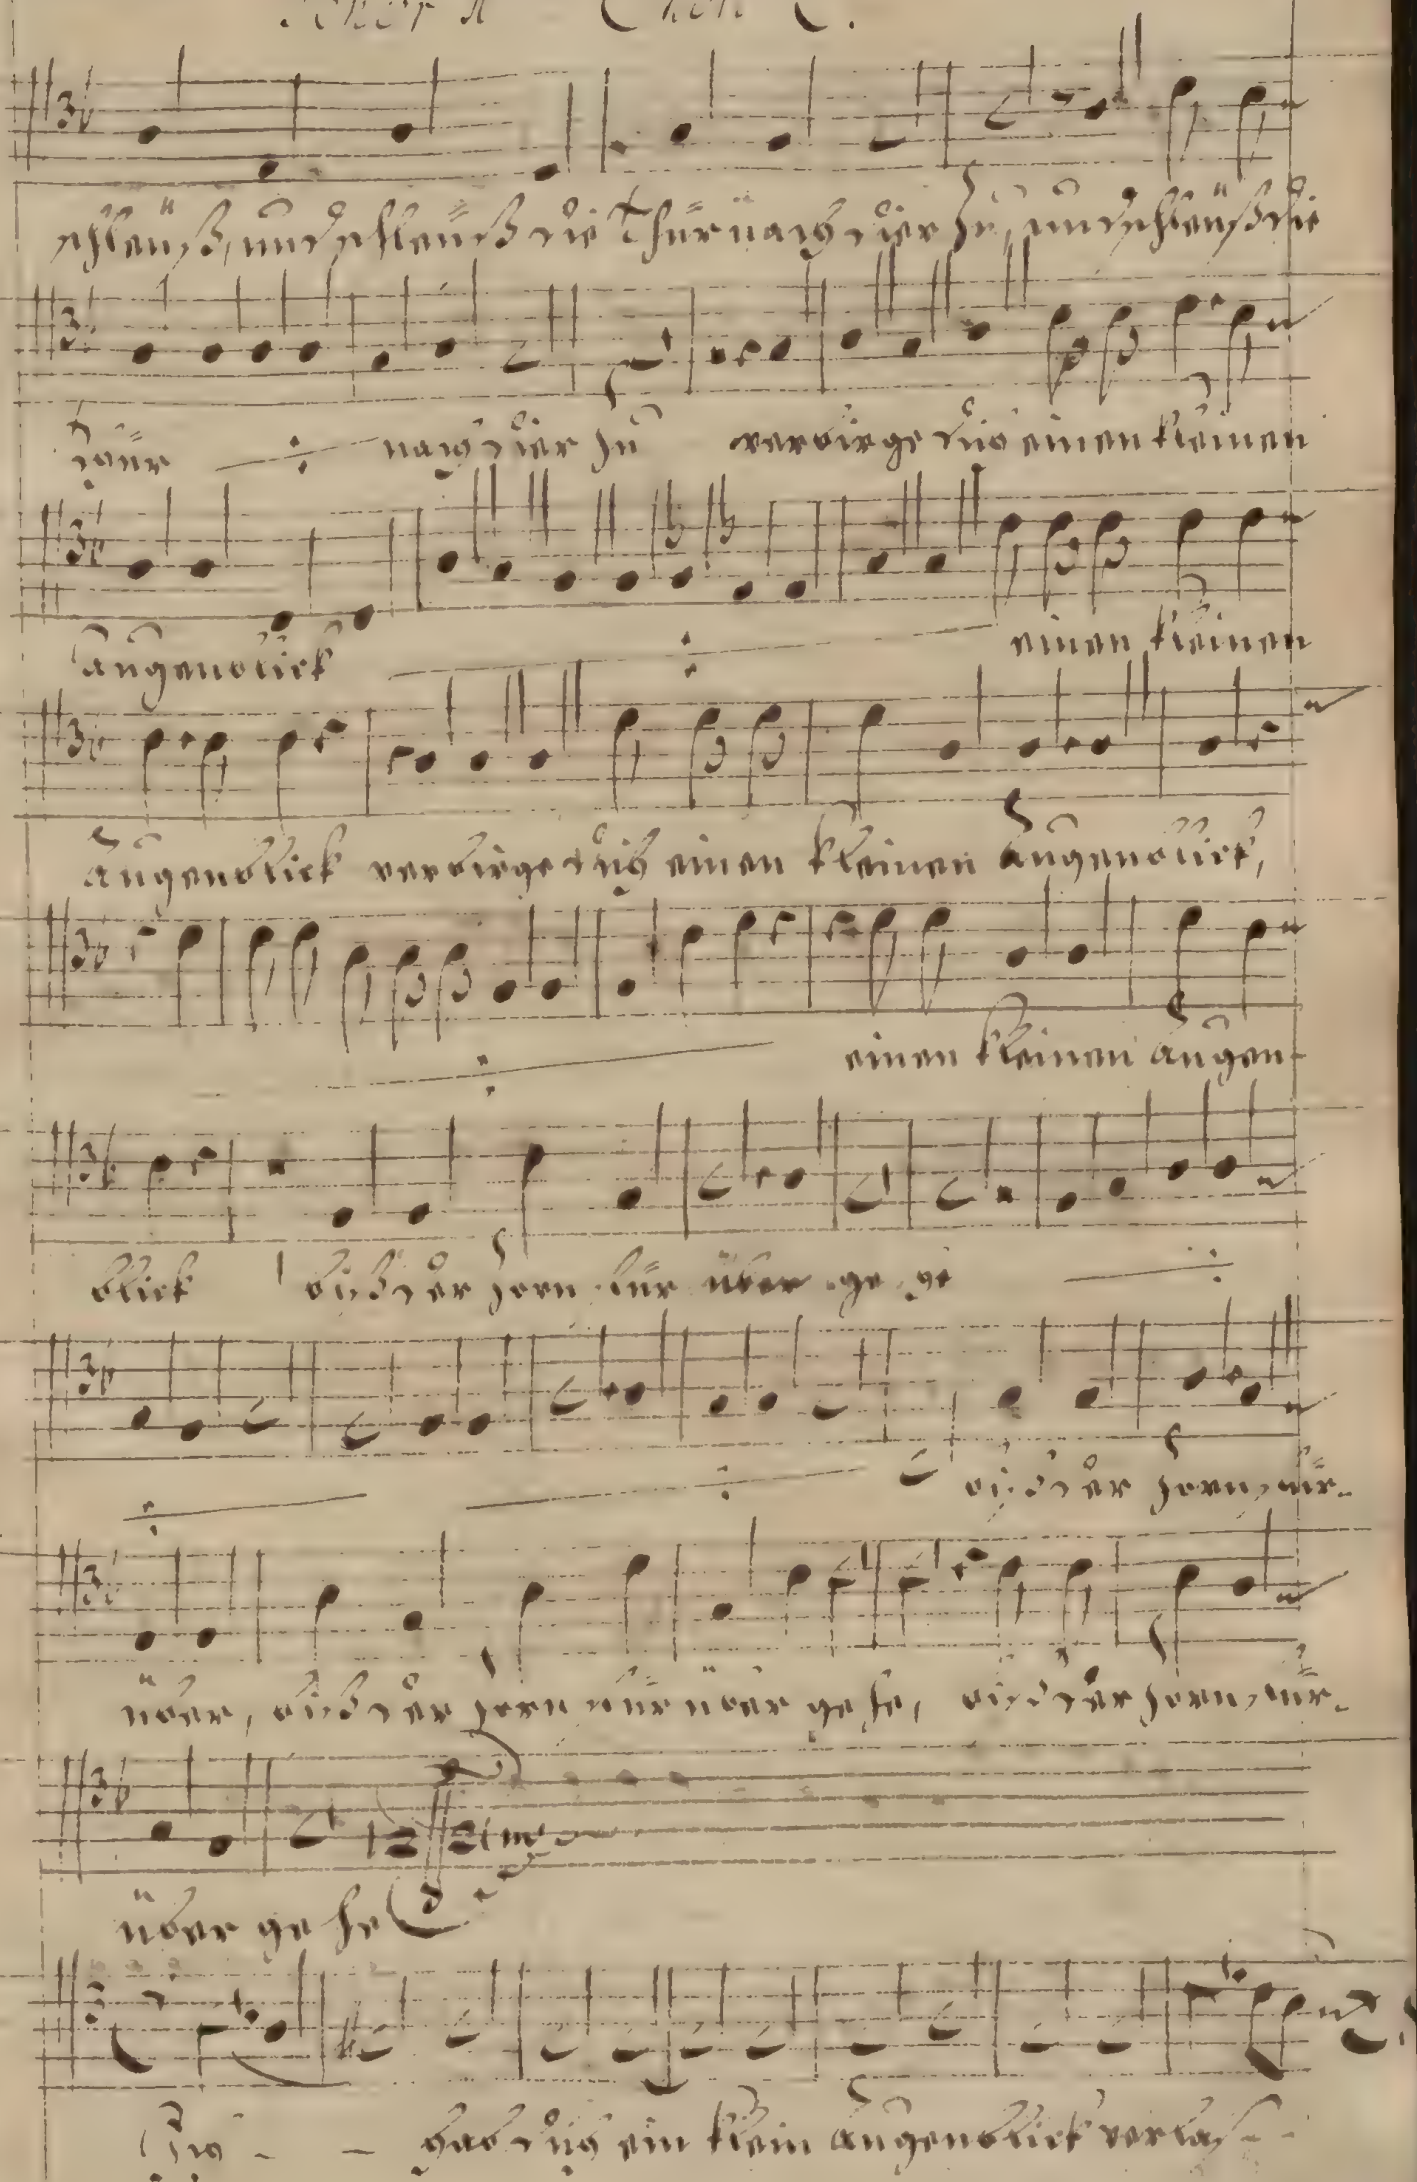 schleuß, und schleuß die Thür nach dier zu, und schleuß die
Thür nach dier zu verbirge dich einen kleinen
Augenblick einen kleinen
Augenblick verbirge dich einen kleinen Augenblick,
einen kleinen Augen-
blick biß der Zorn für über ge he
biß der Zorn, für-
über, biß der Zorn für über gehe, biß der Zorn, für-
über gehe
Ich - - hab dich ein klein Augenblick verlaß - -